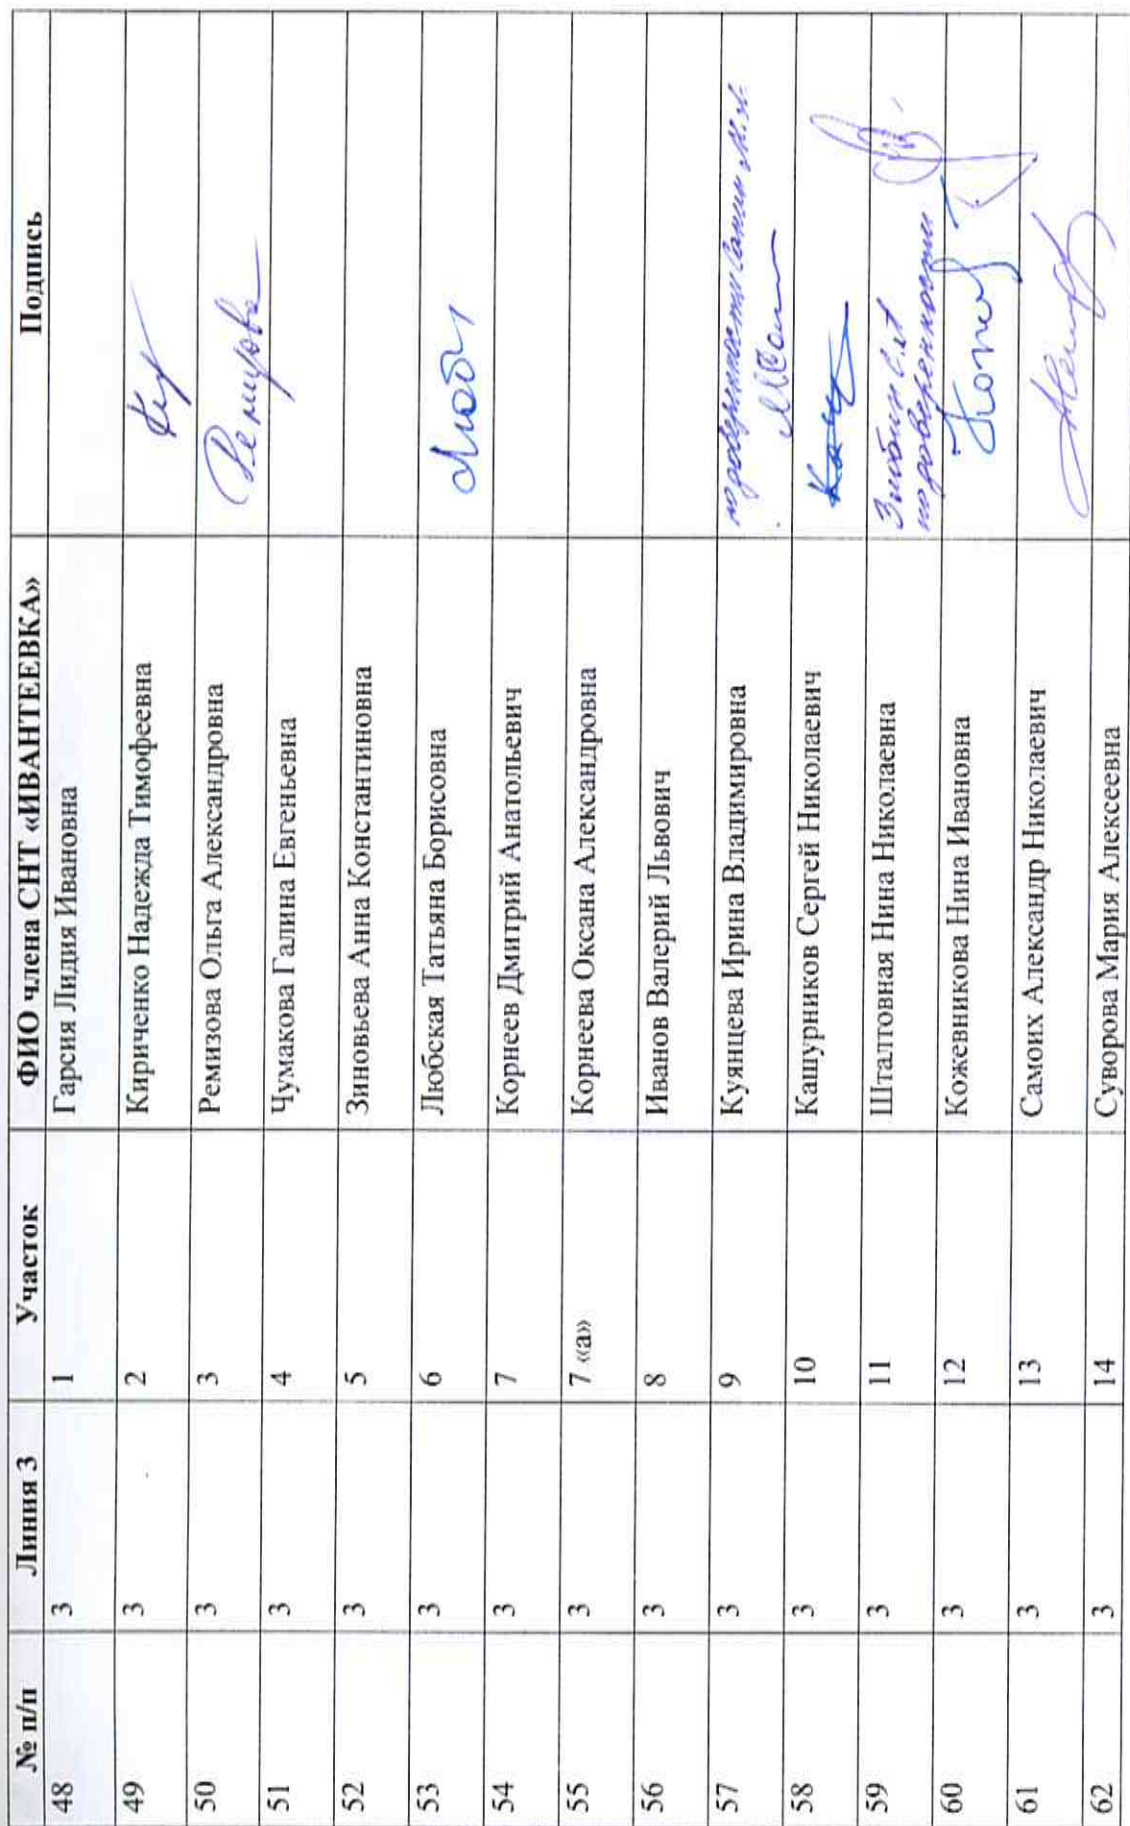 № п/п Линия 3 Участок ФИО члена СНТ «ИВАНТЕЕВКА» Подпись
48 3 1 Гарсия Лидия Ивановна
49 3 2 Кириченко Надежда Тимофеевна
50 3 3 Ремизова Ольга Александровна
51 3 4 Чумакова Галина Евгеньевна
52 3 5 Зиновьева Анна Константиновна
53 3 6 Любская Татьяна Борисовна
54 3 7 Корнеев Дмитрий Анатольевич
55 3 7 «а» Корнеева Оксана Александровна
56 3 8 Иванов Валерий Львович
57 3 9 Куянцева Ирина Владимировна по доверенности
58 3 10 Кашурников Сергей Николаевич
59 3 11 Шталтовная Нина Николаевна
по доверенности
60 3 12 Кожевникова Нина Ивановна
61 3 13 Самоих Александр Николаевич
62 3 14 Суворова Мария Алексеевна